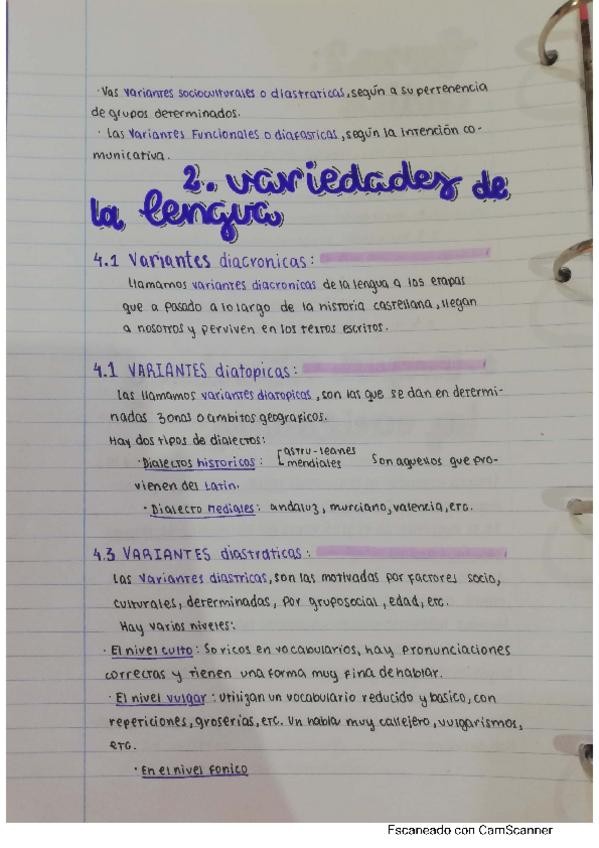 · Vas variantes socioculturales o diastraticas, según a su pertenencia
de grupos determinados.
· Las variantes Funcionales o diafasticas, según la intención co-
municativa.
2. variedades de
la lengua
4.1 Variantes diacronicas:
llamamos variantes diacronicas de la lengua a los etapas
que a pasado a lo largo de la historia castellana, llegan
a nosotros y perviven en los textos escritos.
4.1 VARIANTES diatopicas:
las llamamos variantes diatopicas, son las que se dan en determi-
nadas zonas o ambitos geograficos.
Hay dos tipos de dialectos:
· Dialectos historicos: [astru-leones
mendiales son aquellos que pro-
vienen del Latin.
· Dialecto mediales: andaluz, murciano, valencia, etc.
4.3 VARIANTES diastraticas:
Las variantes diastricas, son las motivadas por factores socio,
culturales, determinadas, por grupo social, edad, etc.
Hay varios niveles:
· El nivel culto: So ricos en vocabularios, hay pronunciaciones
correctas y tienen una forma muy fina de hablar.
· El nivel vulgar: utilizan un vocabulario reducido y basico, con
repeticiones, groserias, etc. Un habla muy callejero, vulgarismos,
etc.
· En el nivel fonico
Escaneado con CamScanner